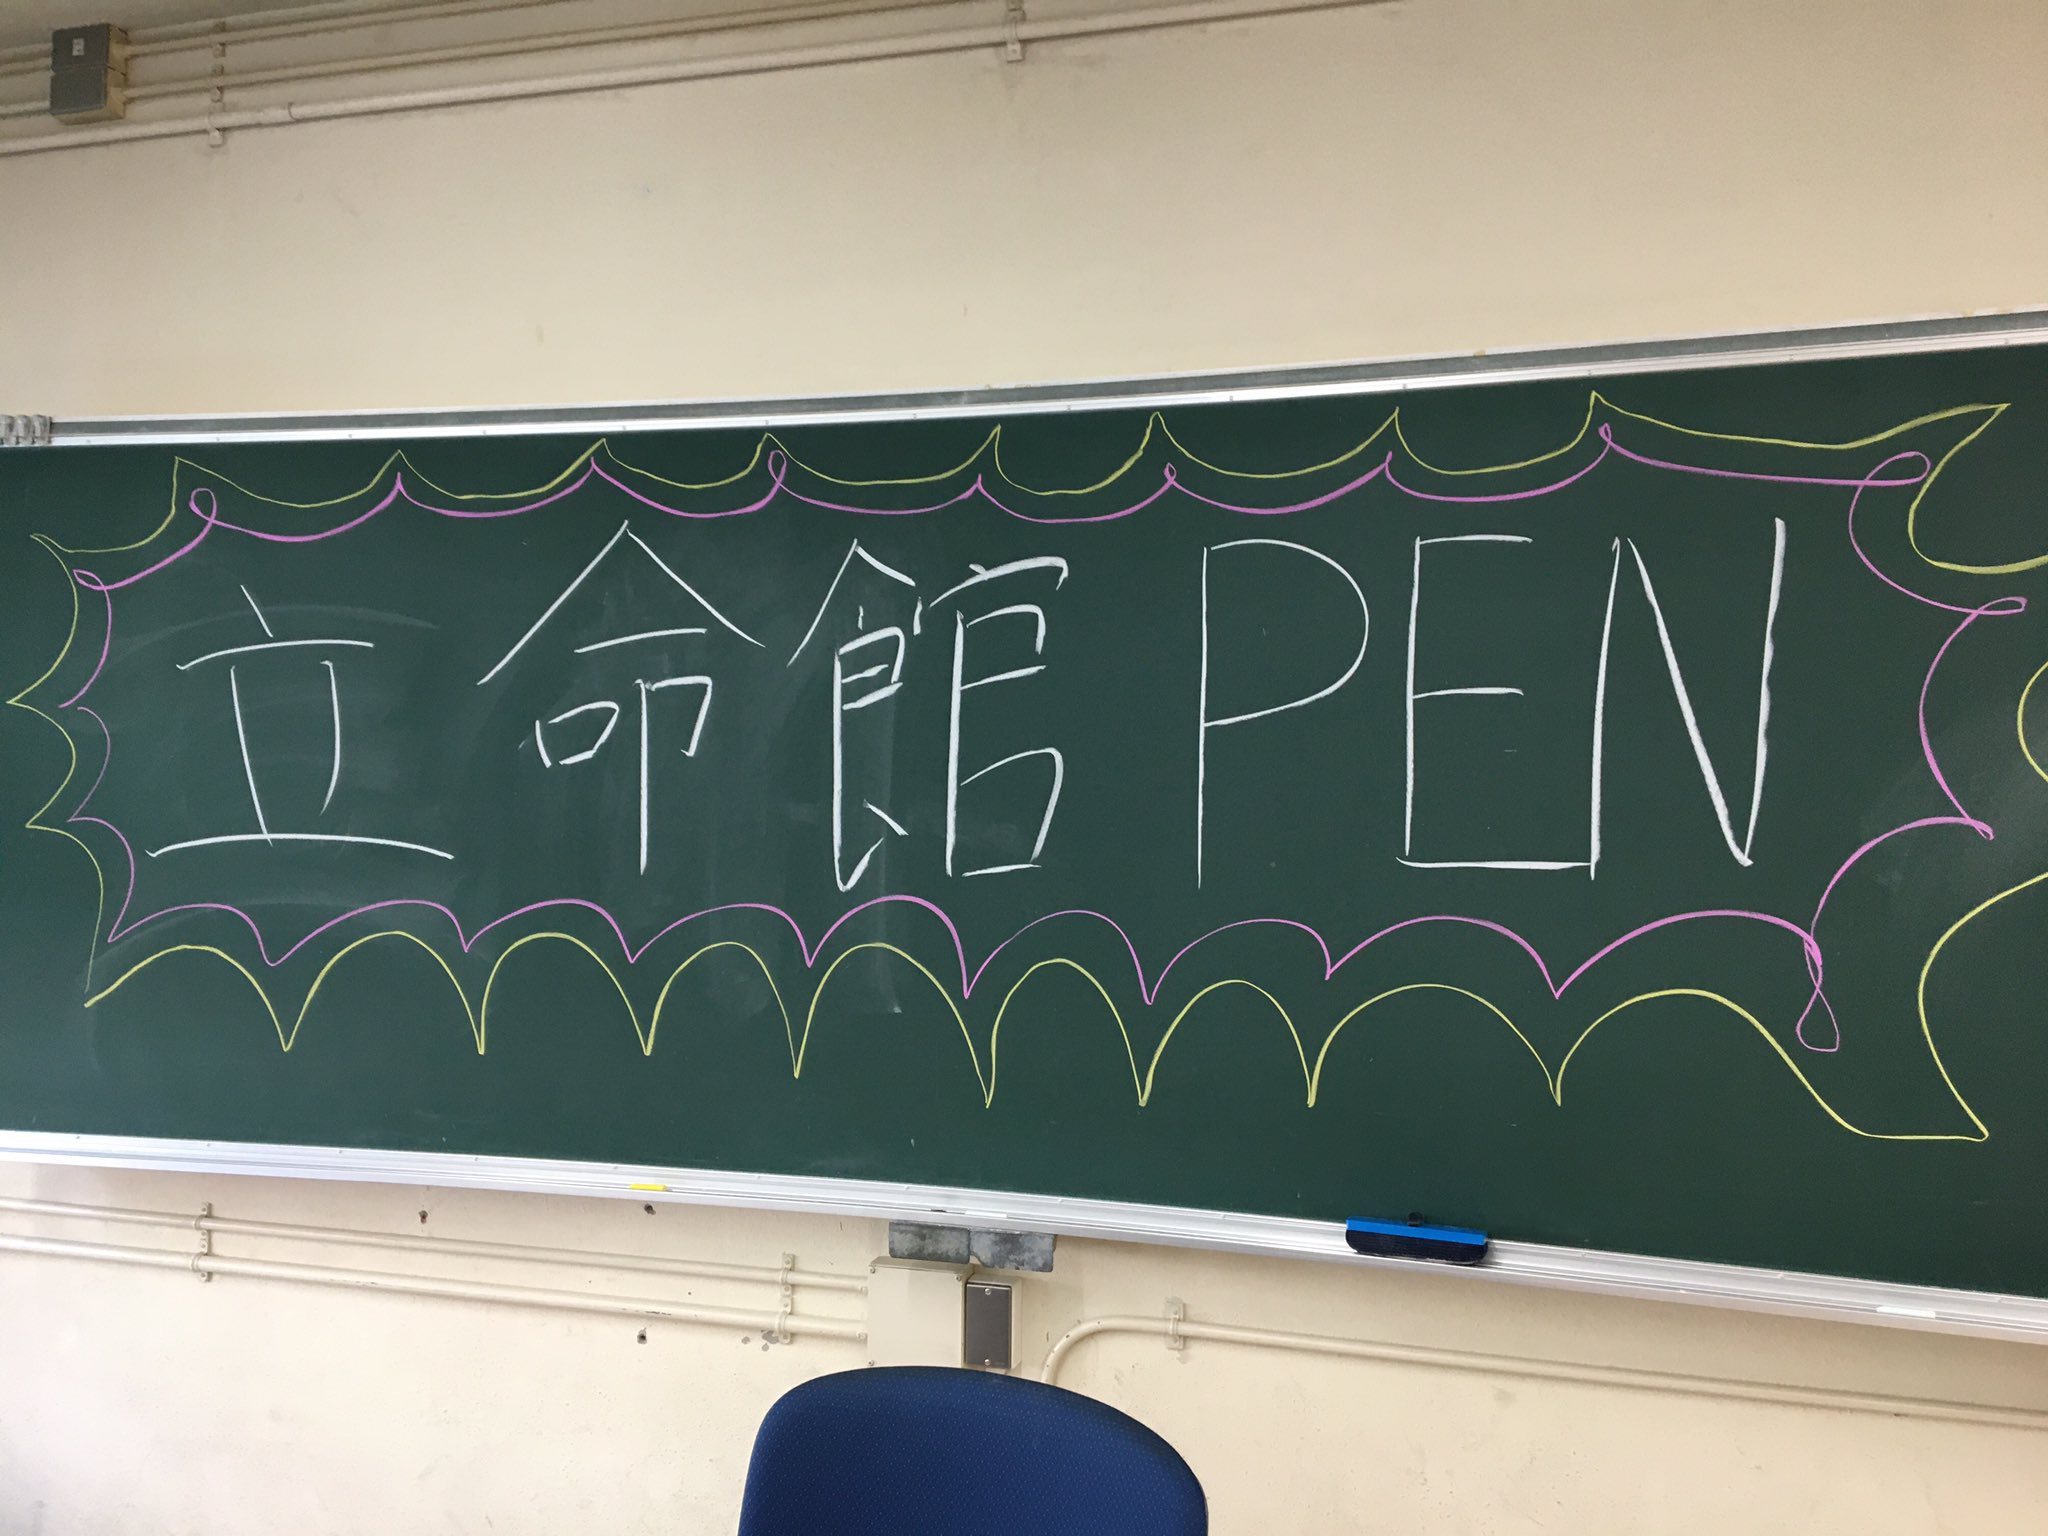 立命館 PEN